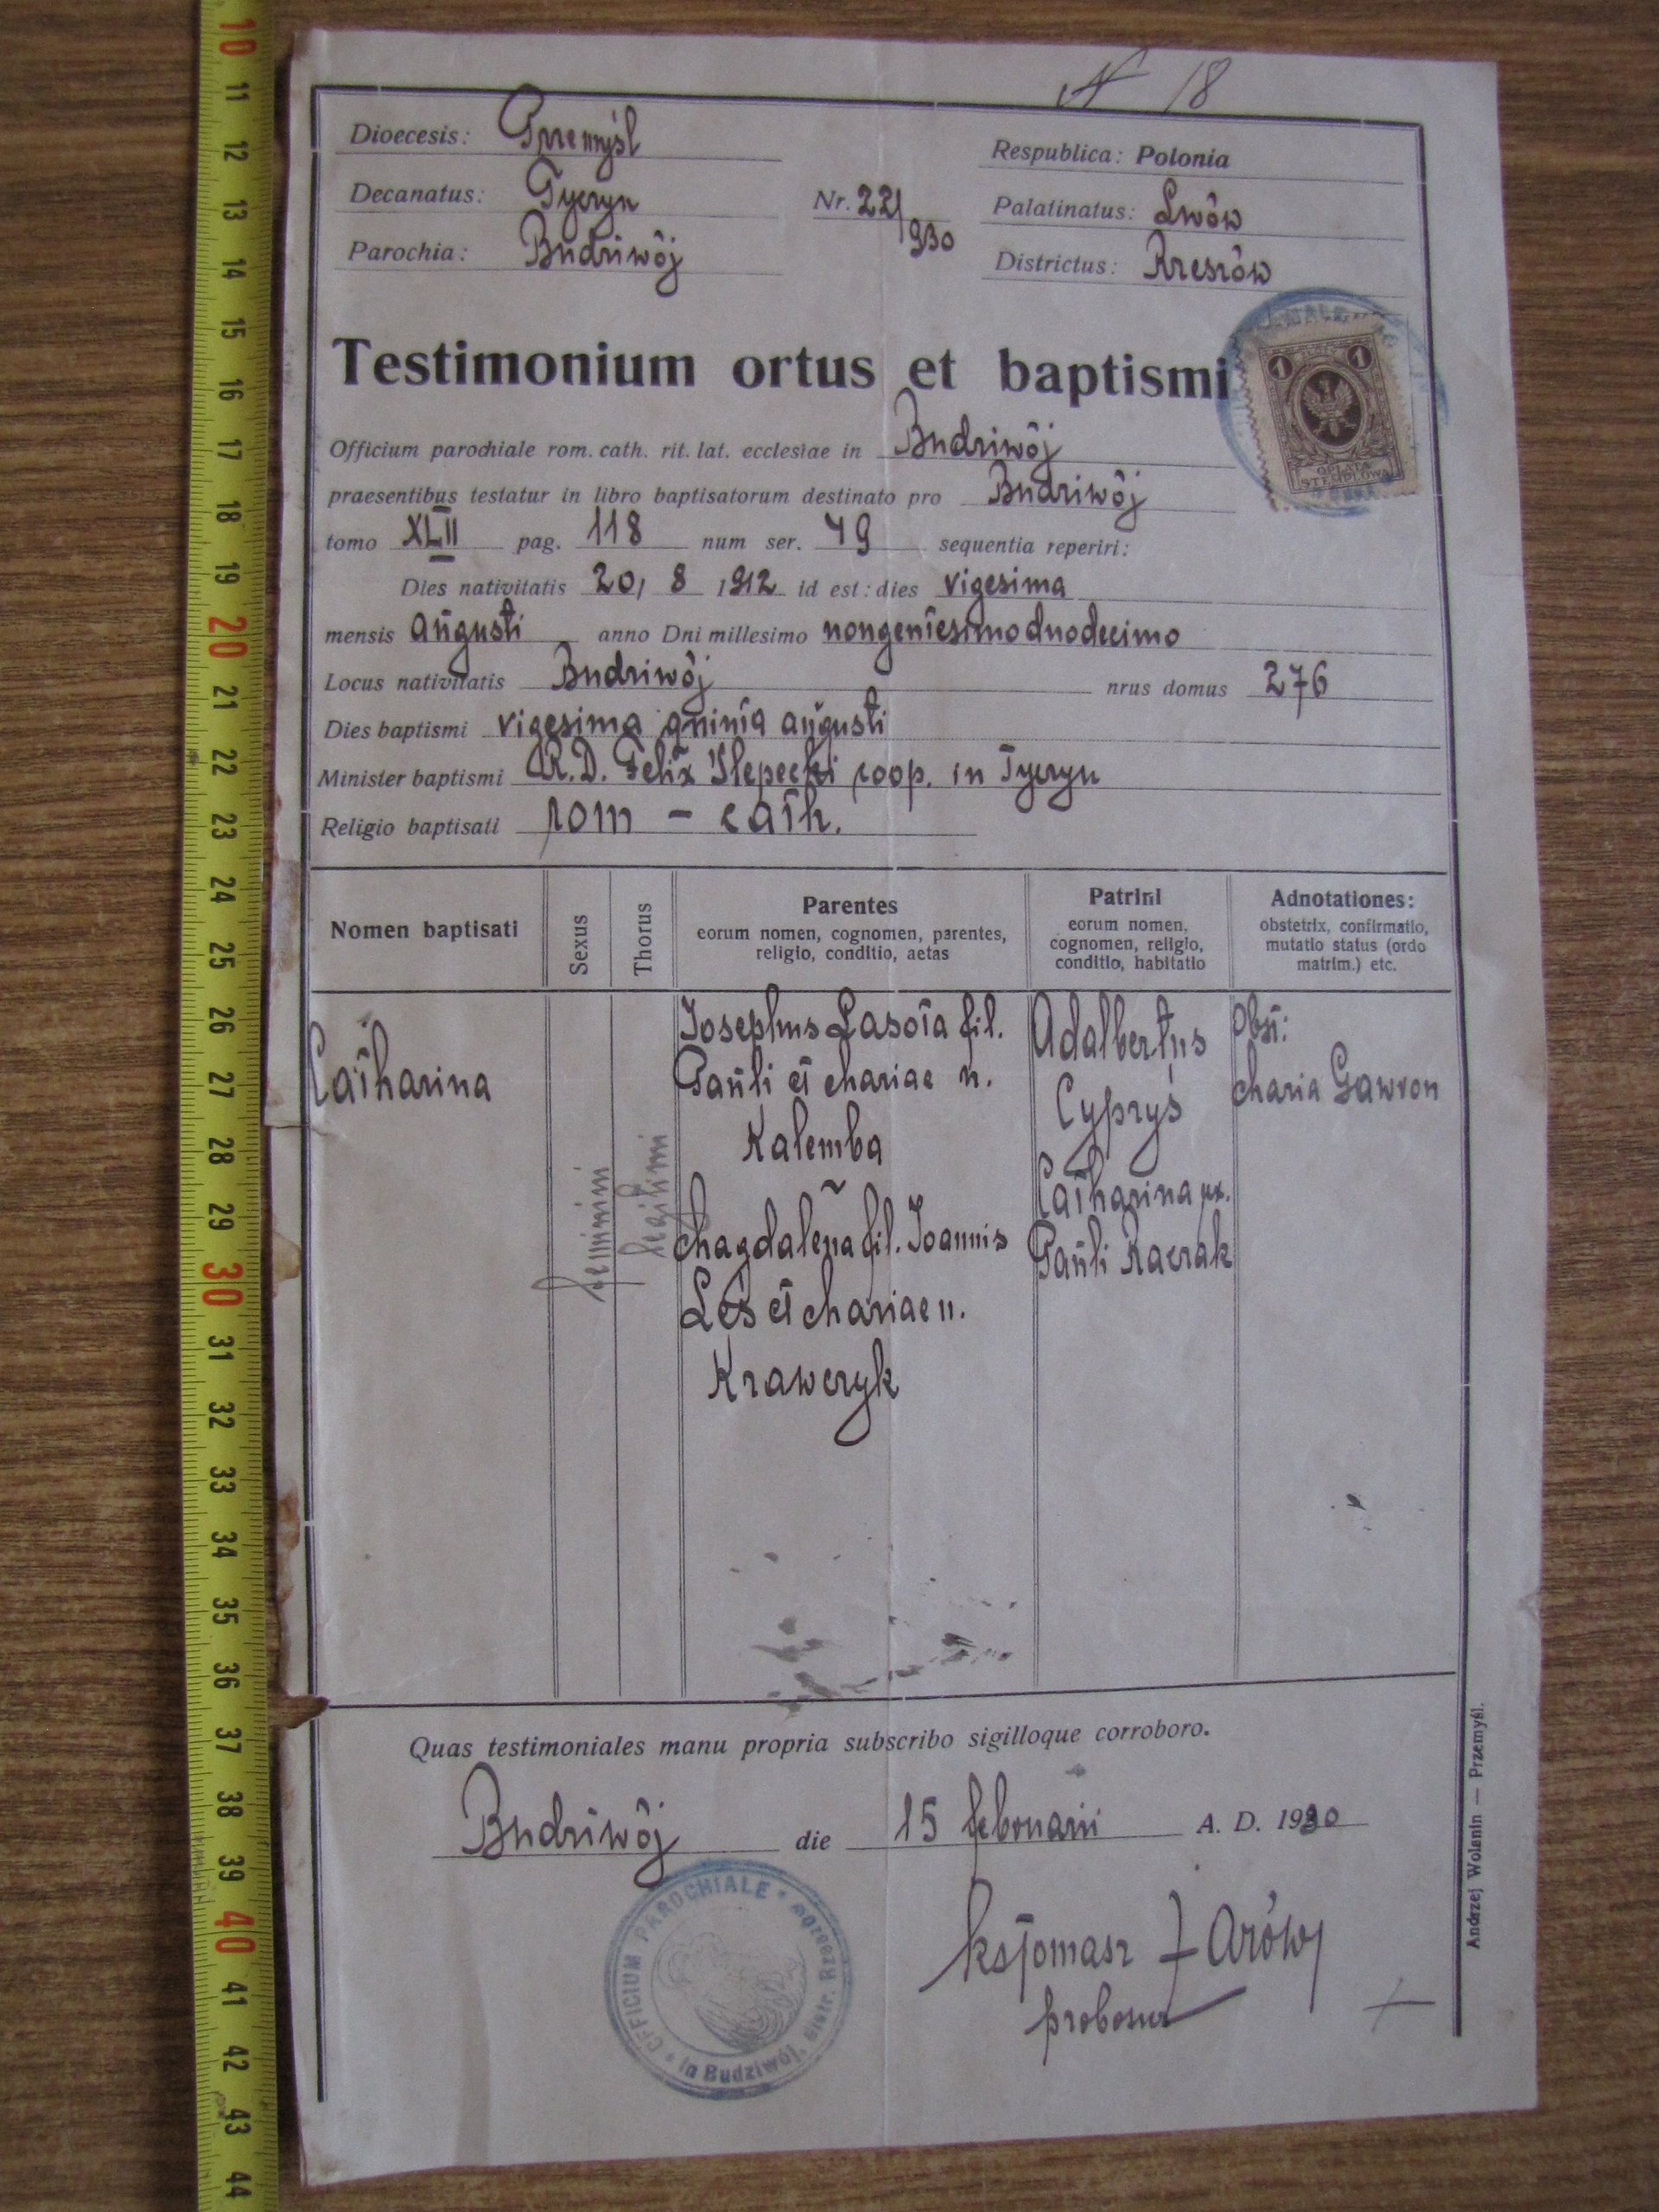 N 18
Dioecesis: Przemyśl
Respublica: Polonia
Decanatus: Tyczyn
Nr. 22/930
Palatinatus: Lwów
Parochia: Budziwój
Districtus: Rzeszów
Testimonium ortus et baptismi
1 1
OPŁATA
STEMPLOWA
Officium parochiale rom. cath. rit. lat. ecclesiae in Budziwój
praesentibus testatur in libro baptisatorum destinato pro Budziwój
tomo XLII pag. 118 num ser. 49 sequentia reperiri:
Dies nativitatis 20, 8 1912 id est: dies vigesima
mensis augusti anno Dni millesimo nongentesimo duodecimo
Locus nativitatis Budziwój nrus domus 276
Dies baptismi vigesima quinta augusti
Minister baptismi R. D. Felix Ślepecki coop. in Tyczyn
Religio baptisati rom - cath.
Nomen baptisati
Sexus
Thorus
Parentes
eorum nomen, cognomen, parentes,
religio, conditio, aetas
Patrini
eorum nomen,
cognomen, religio,
conditio, habitatio
Adnotationes:
obstetrix, confirmatio,
mutatio status (ordo
matrim.) etc.
Catharina
feminini
legitimi
Josephus Lasota fil.
Pauli et Mariae n.
Kalemba
Magdalena fil. Joannis
Leś et Mariae n.
Krawczyk
Adalbertus
Cypryś
Catharina ux.
Pauli Kaczak
Obst:
Maria Gawron
Quas testimoniales manu propria subscribo sigilloque corroboro.
Budziwój die 15 februarii A. D. 1930
OFFICIUM PAROCHIALE
in Budziwój, distr. Rzeszów
ks Tomasz
proboszcz
Andrzej Wolanin — Przemyśl.
10
11
12
13
14
15
16
17
18
19
20
21
22
23
24
25
26
27
28
29
30
31
32
33
34
35
36
37
38
39
40
41
42
43
44